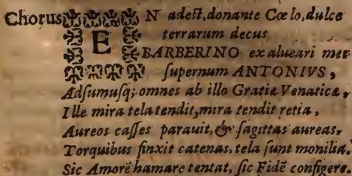 Chorus EN adest, donante Cœlo, dulce
terrarum decus
BARBERINO ex alueari mer
supernum ANTONIVS,
Adsumusq; omnes ab illo Gratiæ Venatica,
Ille mira tela tendit, mira tendit retia,
Aureos casses parauit, & sagittas aureas,
Torquibus finxit catenas, tela sunt monilia.
Sic Amorē hamare tentat, sic Fidē configere.